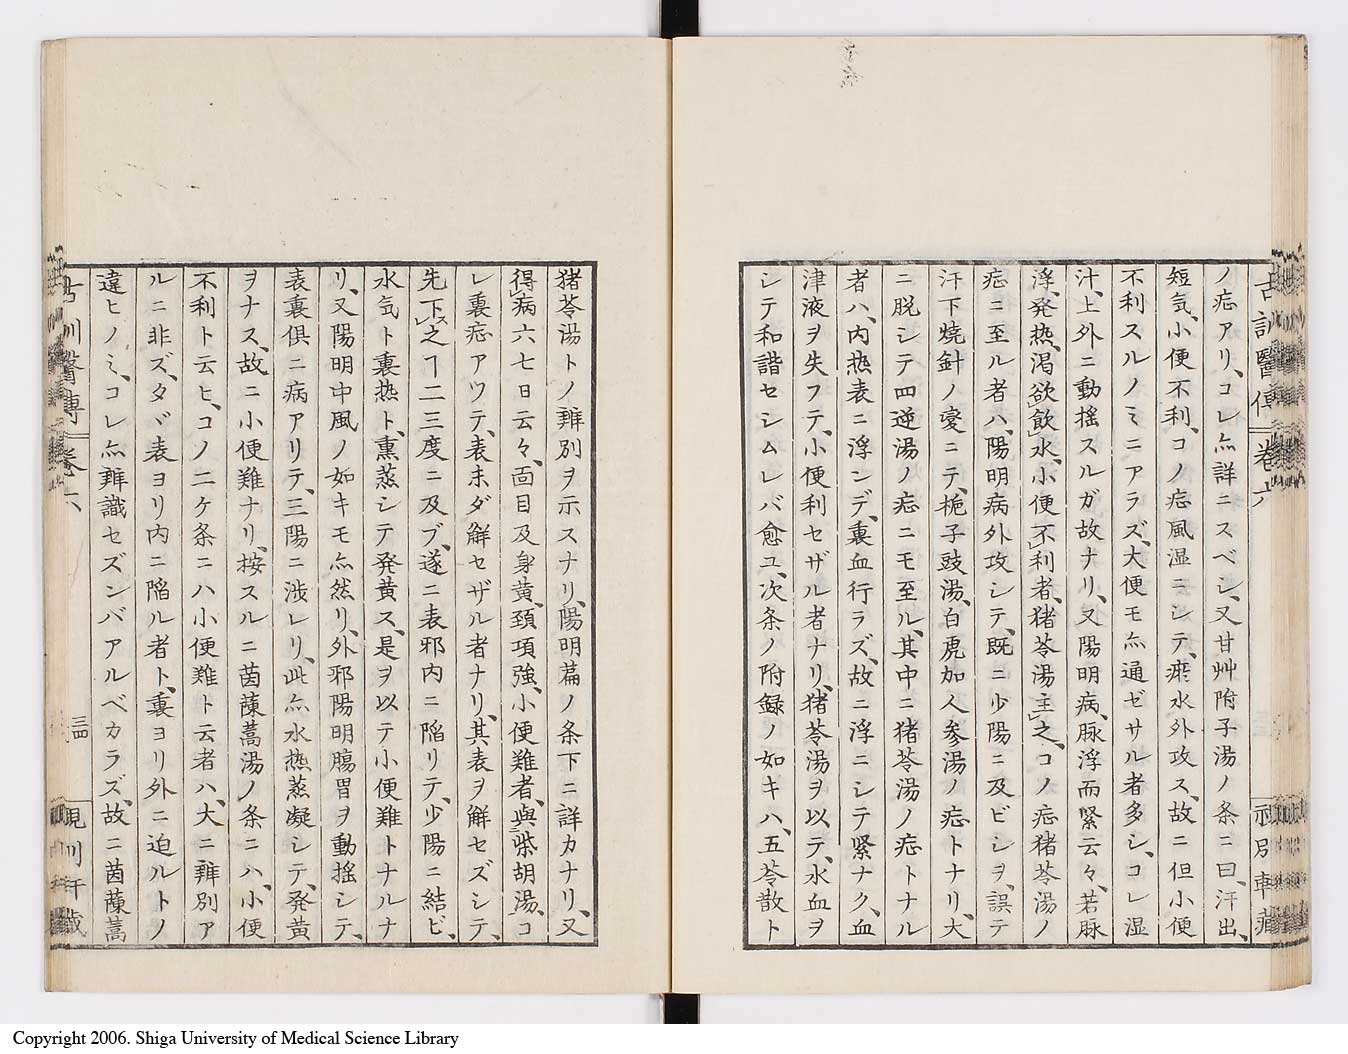 ノ㽷アリ、コレ亦詳ニスベシ、又甘艸附子湯ノ条ニ曰、汗出、
短気、小便不利、コノ㽷風湿ニシテ、瘀水外攻ス、故ニ但小便
不利スルノミニアラズ、大便モ亦通ゼサル者多シ、コレ湿
汁、上外ニ動揺スルガ故ナリ、又陽明病、脉浮而緊云々、若脉
浮、発熱、渇欲飲水、小便不利者、猪苓湯主之、コノ㽷猪苓湯ノ
㽷ニ至ル者ハ、陽明病外攻シテ、既ニ少陽ニ及ビシヲ、誤テ
汗下焼針ノ変ニテ、梔子豉湯、白虎加人参湯ノ㽷トナリ、大
ニ脱シテ四逆湯ノ㽷ニモ至ル、其中ニ猪苓湯ノ㽷トナル
者ハ、内熱表ニ浮ンデ、裏血行ラズ、故ニ浮ニシテ緊ナク、血
津液ヲ失フテ、小便利セザル者ナリ、猪苓湯ヲ以テ、水血ヲ
シテ和諧セシムレバ愈ユ、次条ノ附録ノ如キハ、五苓散ト
猪苓湯トノ辨別ヲ示スナリ、陽明篇ノ条下ニ詳カナリ、又
得病六七日云々、面目及身黄、頚項強、小便難者、與柴胡湯、コ
レ裏㽷アツテ、表未ダ解セザル者ナリ、其表ヲ解セズシテ、
先下之ヿ二三度ニ及ブ、遂ニ表邪内ニ陥リテ、少陽ニ結ビ、
水気ト裏热ト、熏蒸シテ発黄ス、是ヲ以テ小便難トナルナ
リ、又陽明中風ノ如キモ亦然リ、外邪陽明腸胃ヲ動揺シテ、
表裏俱ニ病アリテ、三陽ニ渉レリ、此亦水热蒸凝シテ、発黄
ヲナス、故ニ小便難ナリ、按スルニ茵蔯蒿湯ノ条ニハ、小便
不利ト云ヒ、コノ二ケ条ニハ小便難ト云者ハ、大ニ辨別ア
ルニ非ズ、タヾ表ヨリ内ニ陥ル者ト、裏ヨリ外ニ迫ルトノ
違ヒノミ、コレ亦辨識セズンバアルベカラズ、故ニ茵蔯蒿
古訓醫傳 巻六
三四
Copyright 2006. Shiga University of Medical Science Library